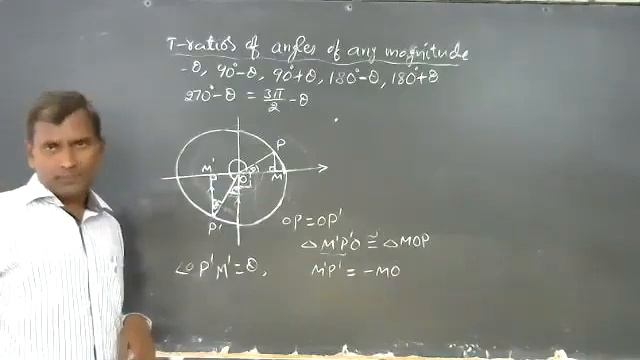 T-ratios of angles of any magnitude
-θ, 90°-θ, 90°+θ, 180°-θ, 180°+θ
270°-θ = 3π/2 -θ
P
M'
θ
O
M
θ
P'
OP=OP'
△ M'P'O ≅ △MOP
∠O P'M'=θ, M'P' = -MO